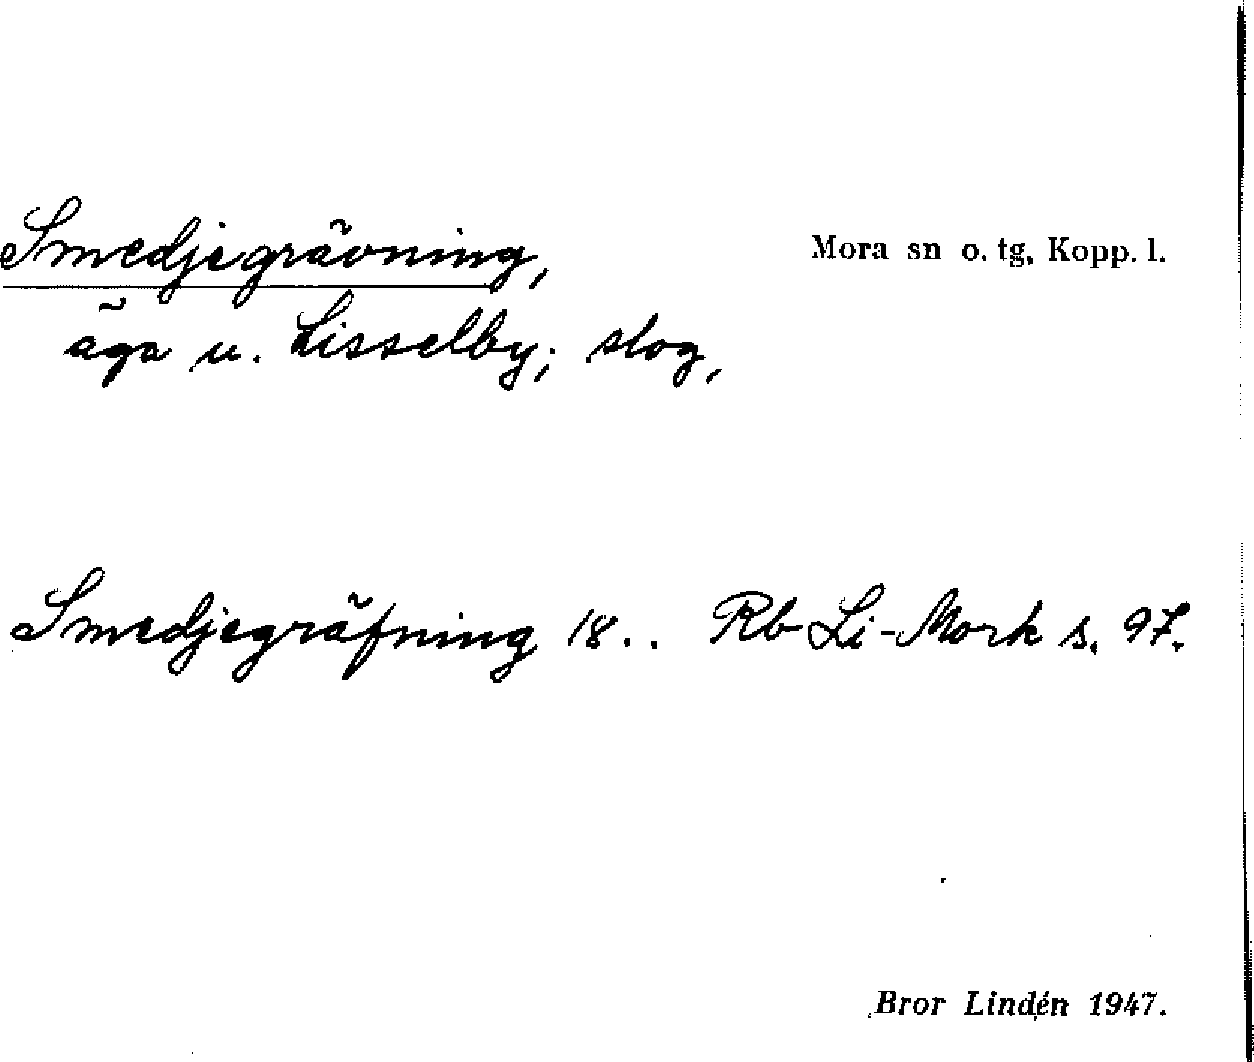 Smedjegrävning,
Mora sn o. tg, Kopp. l.
äga u. Lisselby; slog,
Smedjegräfning 18.. Rb Li-Mork s. 97.
Bror Lindén 1947.